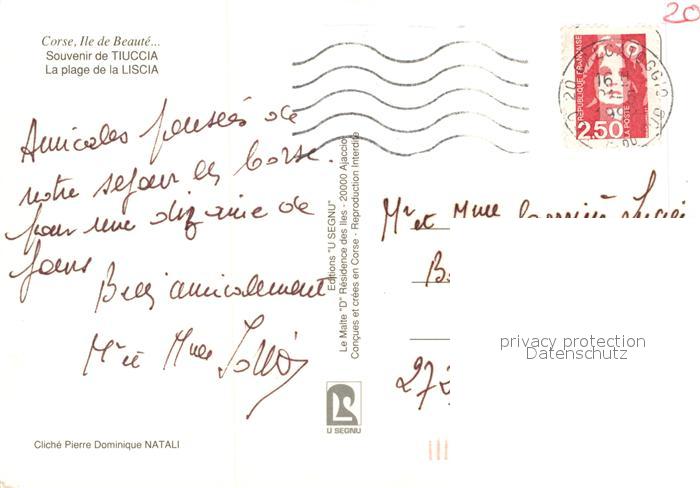 Corse, Ile de Beauté...
Souvenir de TIUCCIA
La plage de la LISCIA
20
REPUBLIQUE FRANÇAISE
LA POSTE
2,50
Amicales pensées de
notre sejour en Corse.
pour une dizaine de
jours
Bien amicalement
Mr et Mme
Editions "U SEGNU"
Le Malte "D" Résidence des Iles - 20000 Ajaccio
Conçues et crées en Corse - Reproduction Interdite
Mr et Mme
272
privacy protection
Datenschutz
U SEGNU
Cliché Pierre Dominique NATALI